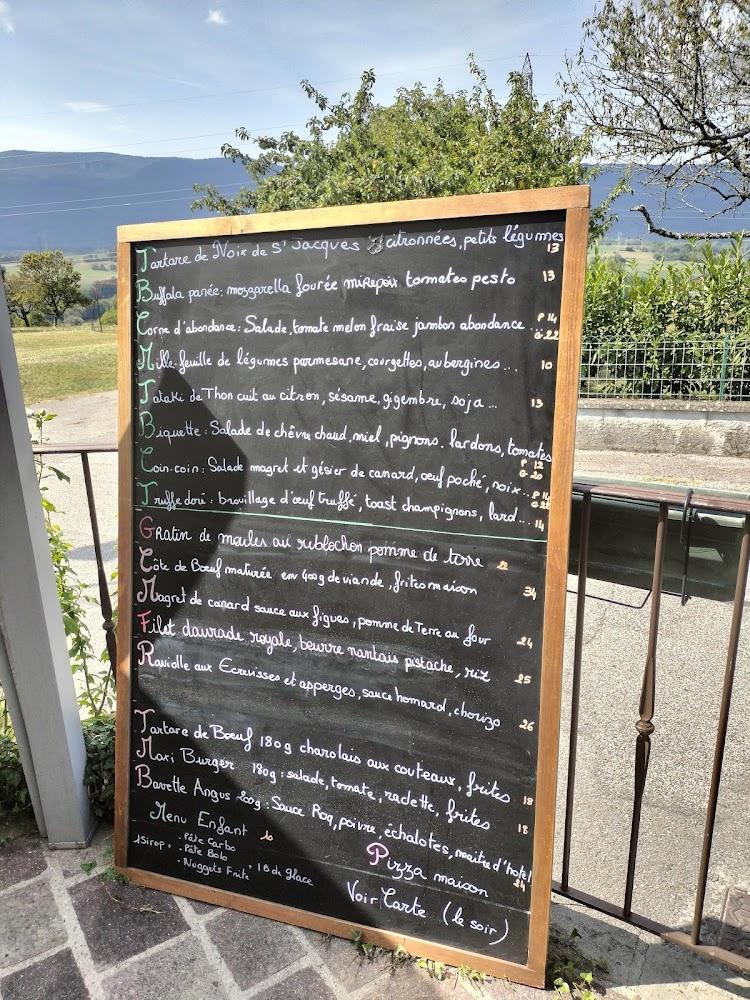 Tartare de Noix de St Jacques citronnées, petits légumes 13
Buffala panée: mozzarella fourée mirepoix tomates pesto 13
Corne d'abondance: Salade, tomate melon fraise jambon abondance... P 14 G 22
Mille-feuille de légumes parmesane, courgettes, aubergines... 10
Tataki de Thon cuit au citron, sésame, gigembre, soja... 13
Biquette: Salade de chêvre chaud, miel, pignons. lardons, tomates P 12 G 20
Coin-coin: Salade magret et gésier de canard, oeuf poché, noix.. P 14 G 22
Truffe doré: brouillage d'oeuf truffé, toast champignons, lard... 14
Gratin de moules au reblochon pomme de terre 2
Côte de Boeuf maturée env 400g de viande, frites maison 34
Magret de canard sauce aux figues, pomme de Terre au four 24
Filet daurade royale, beurre nantais pistache, riz 25
Raviolle aux Ecrevisses et asperges, sauce homard, chorizo 26
Tartare de Boeuf 180g charolais aux couteaux, frites 18
Maxi Burger 180g: salade, tomate, radette, frites 18
Bavette Angus 200g: Sauce Roq, poivre, échalotes, maitre d'hotel 24
Menu Enfant 10
1 Sirop, - Pâte Carbo
- Pâte Bolo
- Nuggets Frite, 1 B de glace
Pizza maison
Voir Carte (le soir)